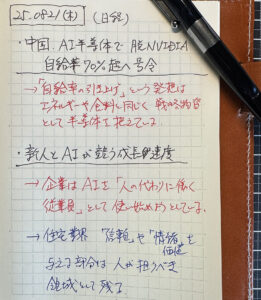 25.0821(木) (日経)
・中国 AI半導体で脱NVIDIA
自給率70%超へ号令
→「自給率の引き上げ」という発想は
エネルギーや食料と同じく戦略物資
として半導体を捉えている。
・新人とAIが競う成長速度
→企業はAIを「人の代わりに働く
従業員」として使い始めようとしている。
→住宅業界 「信頼」や「情緒」を
価値
とする部分は人が担うべき
領域として残る